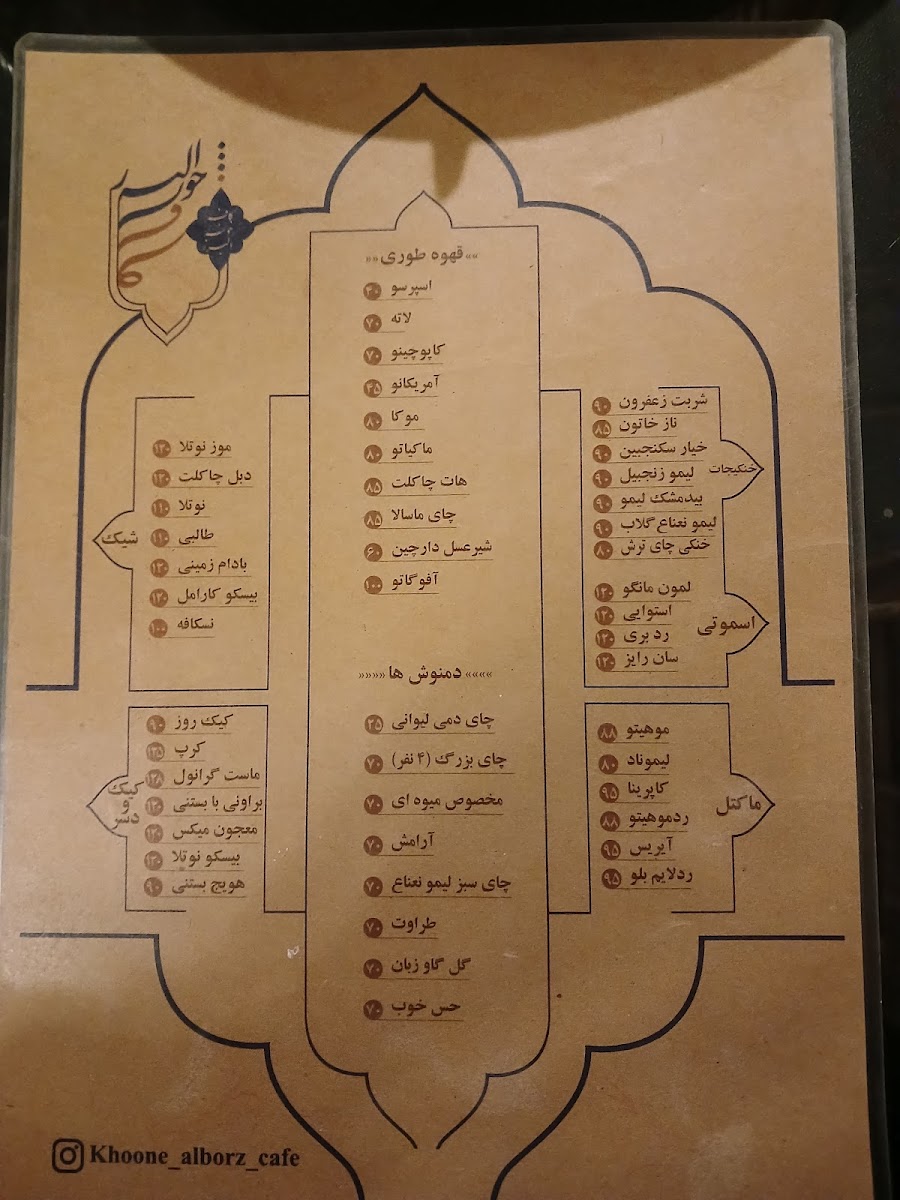 خونه البرز
کافه
»» قهوه طوری ««
اسپرسو ۳۰
لاته ۷۰
کاپوچینو ۷۰
آمریکانو ۴۵
موکا ۸۰
ماکیاتو ۸۰
هات چاکلت ۸۵
چای ماسالا ۸۵
شیرعسل دارچین ۶۰
آفوگاتو ۱۰۰
»»»» دمنوش ها ««««
چای دمی لیوانی ۳۵
چای بزرگ (۴ نفر) ۷۰
مخصوص میوه ای ۷۰
آرامش ۷۰
چای سبز لیمو نعناع ۷۰
طراوت ۷۰
گل گاو زبان ۷۰
حس خوب ۷۰
خنکیجات
شربت زعفرون ۹۰
ناز خاتون ۸۵
خیار سکنجبین ۹۰
لیمو زنجبیل ۹۰
بیدمشک لیمو ۹۰
لیمو نعناع گلاب ۹۰
خنکی چای ترش ۸۰
اسموتی
لمون مانگو ۱۳۰
استوایی ۱۳۰
رد بری ۱۳۰
سان رایز ۱۳۰
ماکتل
موهیتو ۸۸
لیموناد ۸۰
کاپرینا ۹۵
ردموهیتو ۸۸
آیریس ۹۵
ردلایم بلو ۹۵
شیک
موز نوتلا ۱۳۰
دبل چاکلت ۱۳۰
نوتلا ۱۱۰
طالبی ۱۱۰
بادام زمینی ۱۲۰
بیسکو کارامل ۱۲۰
نسکافه ۱۰۰
کیک
و
دسر
کیک روز ۹۰
کرپ ۱۳۵
ماست گرانول ۱۳۸
براونی با بستنی ۱۳۰
معجون میکس
بیسکو نوتلا ۱۳۰
هویج بستنی ۹۰
Khoone_alborz_cafe